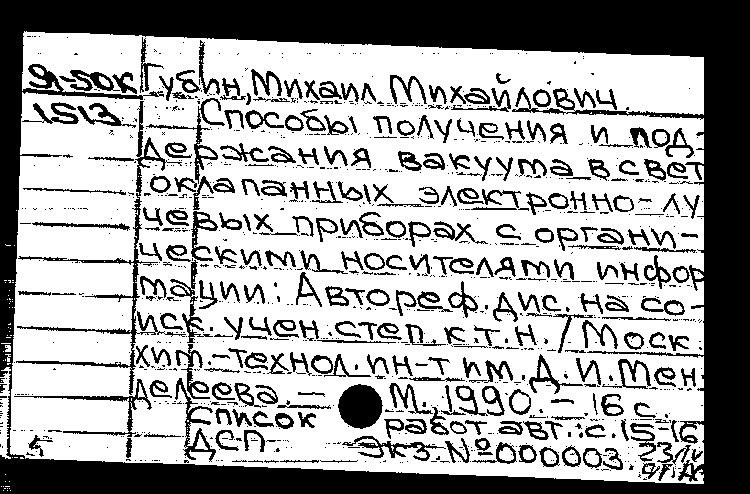 91-50к Губин, Михаил Михайлович.
1513 Способы получения и под-
держания вакуума в свет
оклапанных электронно-лу
чевых приборах с органи-
ческими носителями инфор
мации: Автореф. дис. на со-
иск. учен. степ. к.т.н. / Моск.
хим.-технол. ин-т им. Д.И. Мен-
делеева. — М., 1990. — 16 с.
Список работ авт.: с. 15-16
ДСП. Экз. № 000003.